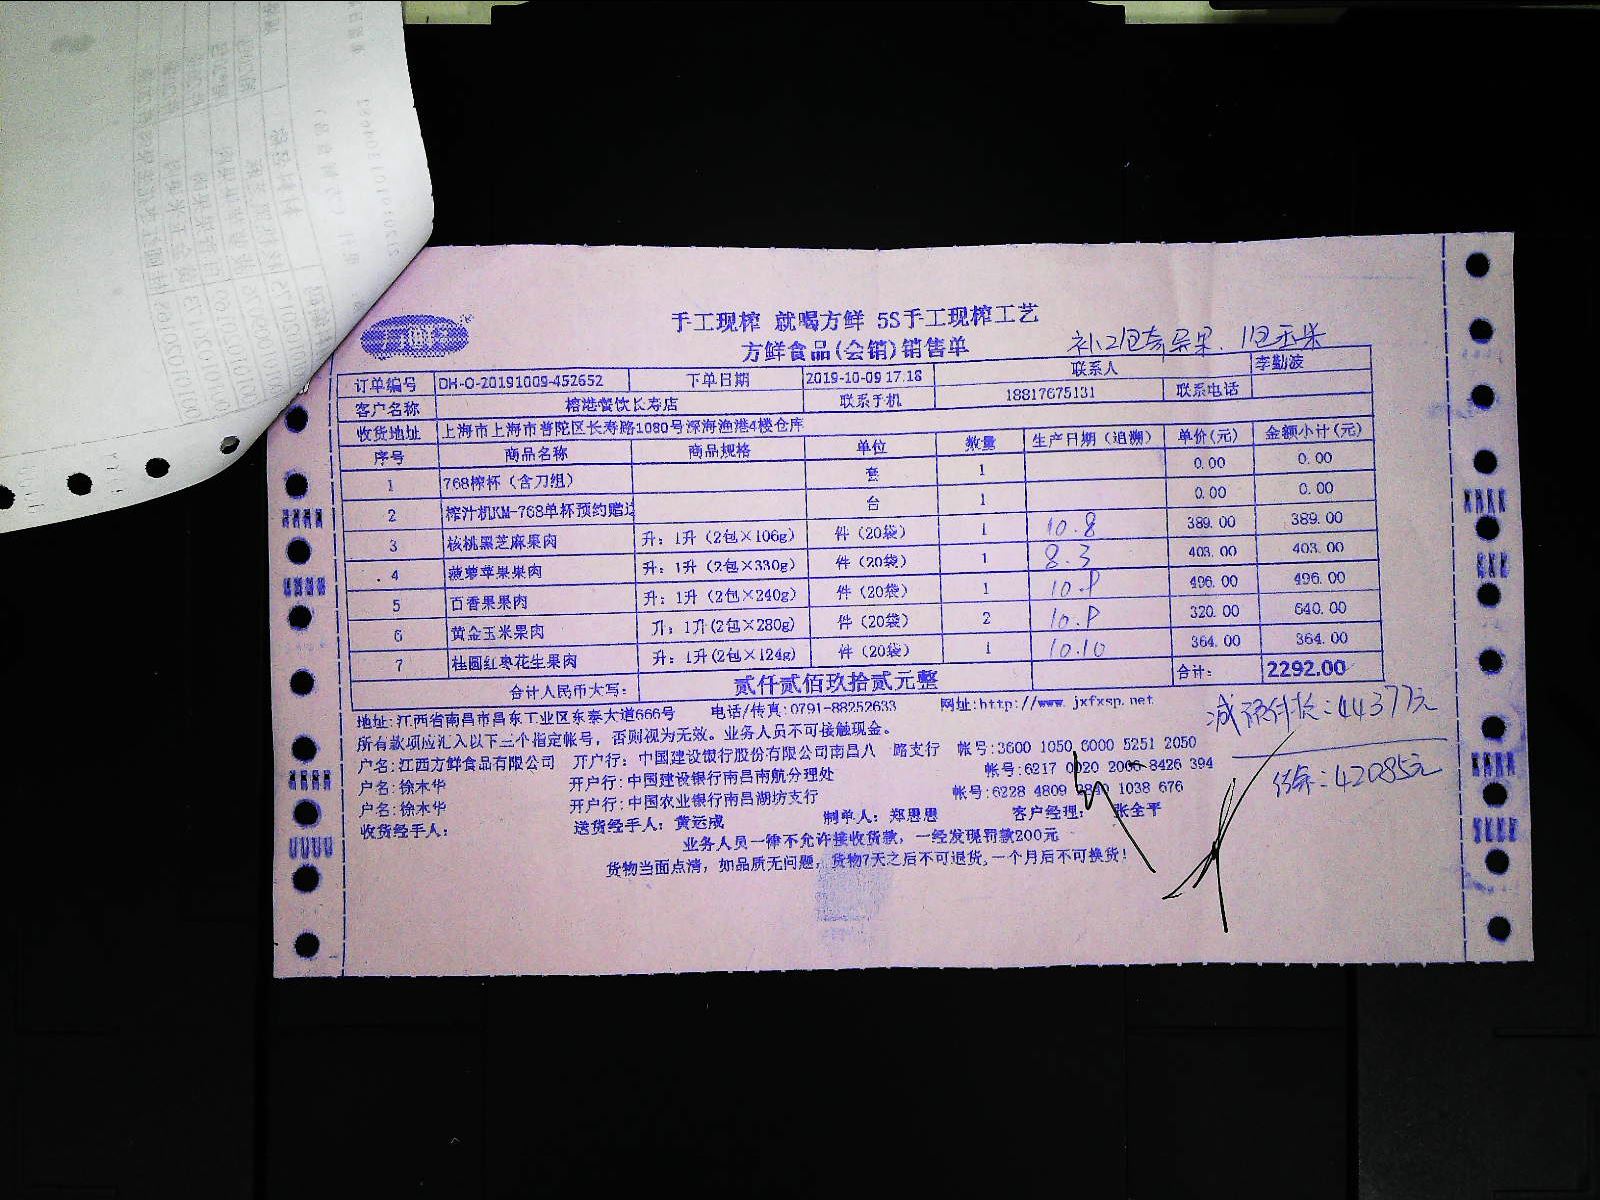 手工现榨 就喝方鲜 5S手工现榨工艺
方鲜食品(会销)销售单
订单编号 DH-O-20191009-452652 下单日期 2019-10-09 17.18 联系人 李勤波
客户名称 榕港餐饮长寿店 联系手机 18817675131 联系电话
收货地址 上海市上海市普陀区长寿路1080号深海渔港4楼仓库
序号 商品名称 商品规格 单位 数量 生产日期（追溯） 单价(元) 金额小计(元)
1 768榨杯（含刀组） 套 1 0.00 0.00
2 榨汁机KM-768单杯预约赠送 台 1 0.00 0.00
3 核桃黑芝麻果肉 升：1升（2包×106g） 件（20袋） 1 10.8 389.00 389.00
4 菠萝苹果果肉 升：1升（2包×330g） 件（20袋） 1 8.3 403.00 403.00
5 百香果果肉 升：1升（2包×240g） 件（20袋） 1 496.00 496.00
6 黄金玉米果肉 升：1升(2包×280g) 件（20袋） 2 320.00 640.00
7 桂圆红枣花生果肉 升：1升(2包×124g) 件（20袋） 1 10.10 364.00 364.00
合计人民币大写： 贰仟贰佰玖拾贰元整 合计： 2292.00
地址:江西省南昌市昌东工业区东泰大道666号 电话/传真:0791-88252633 网址:http://www.jxfxsp.net
减预付款：44377元
所有款项应汇入以下三个指定帐号，否则视为无效。业务人员不可接触现金。
户名:江西方鲜食品有限公司 开户行：中国建设银行股份有限公司南昌八 路支行 帐号:3600 1050 6000 5251 2050
户名:徐木华 开户行:中国建设银行南昌南航分理处 帐号:6217 0020 2006 8426 394
结余：42085元
户名:徐木华 开户行:中国农业银行南昌湖坊支行 帐号:6228 4809 1038 676
收货经手人： 送货经手人：黄运成 制单人：郑思思 客户经理： 张全平
业务人员一律不允许接收货款，一经发现罚款200元
货物当面点清，如品质无问题，货物7天之后不可退货,一个月后不可换货！